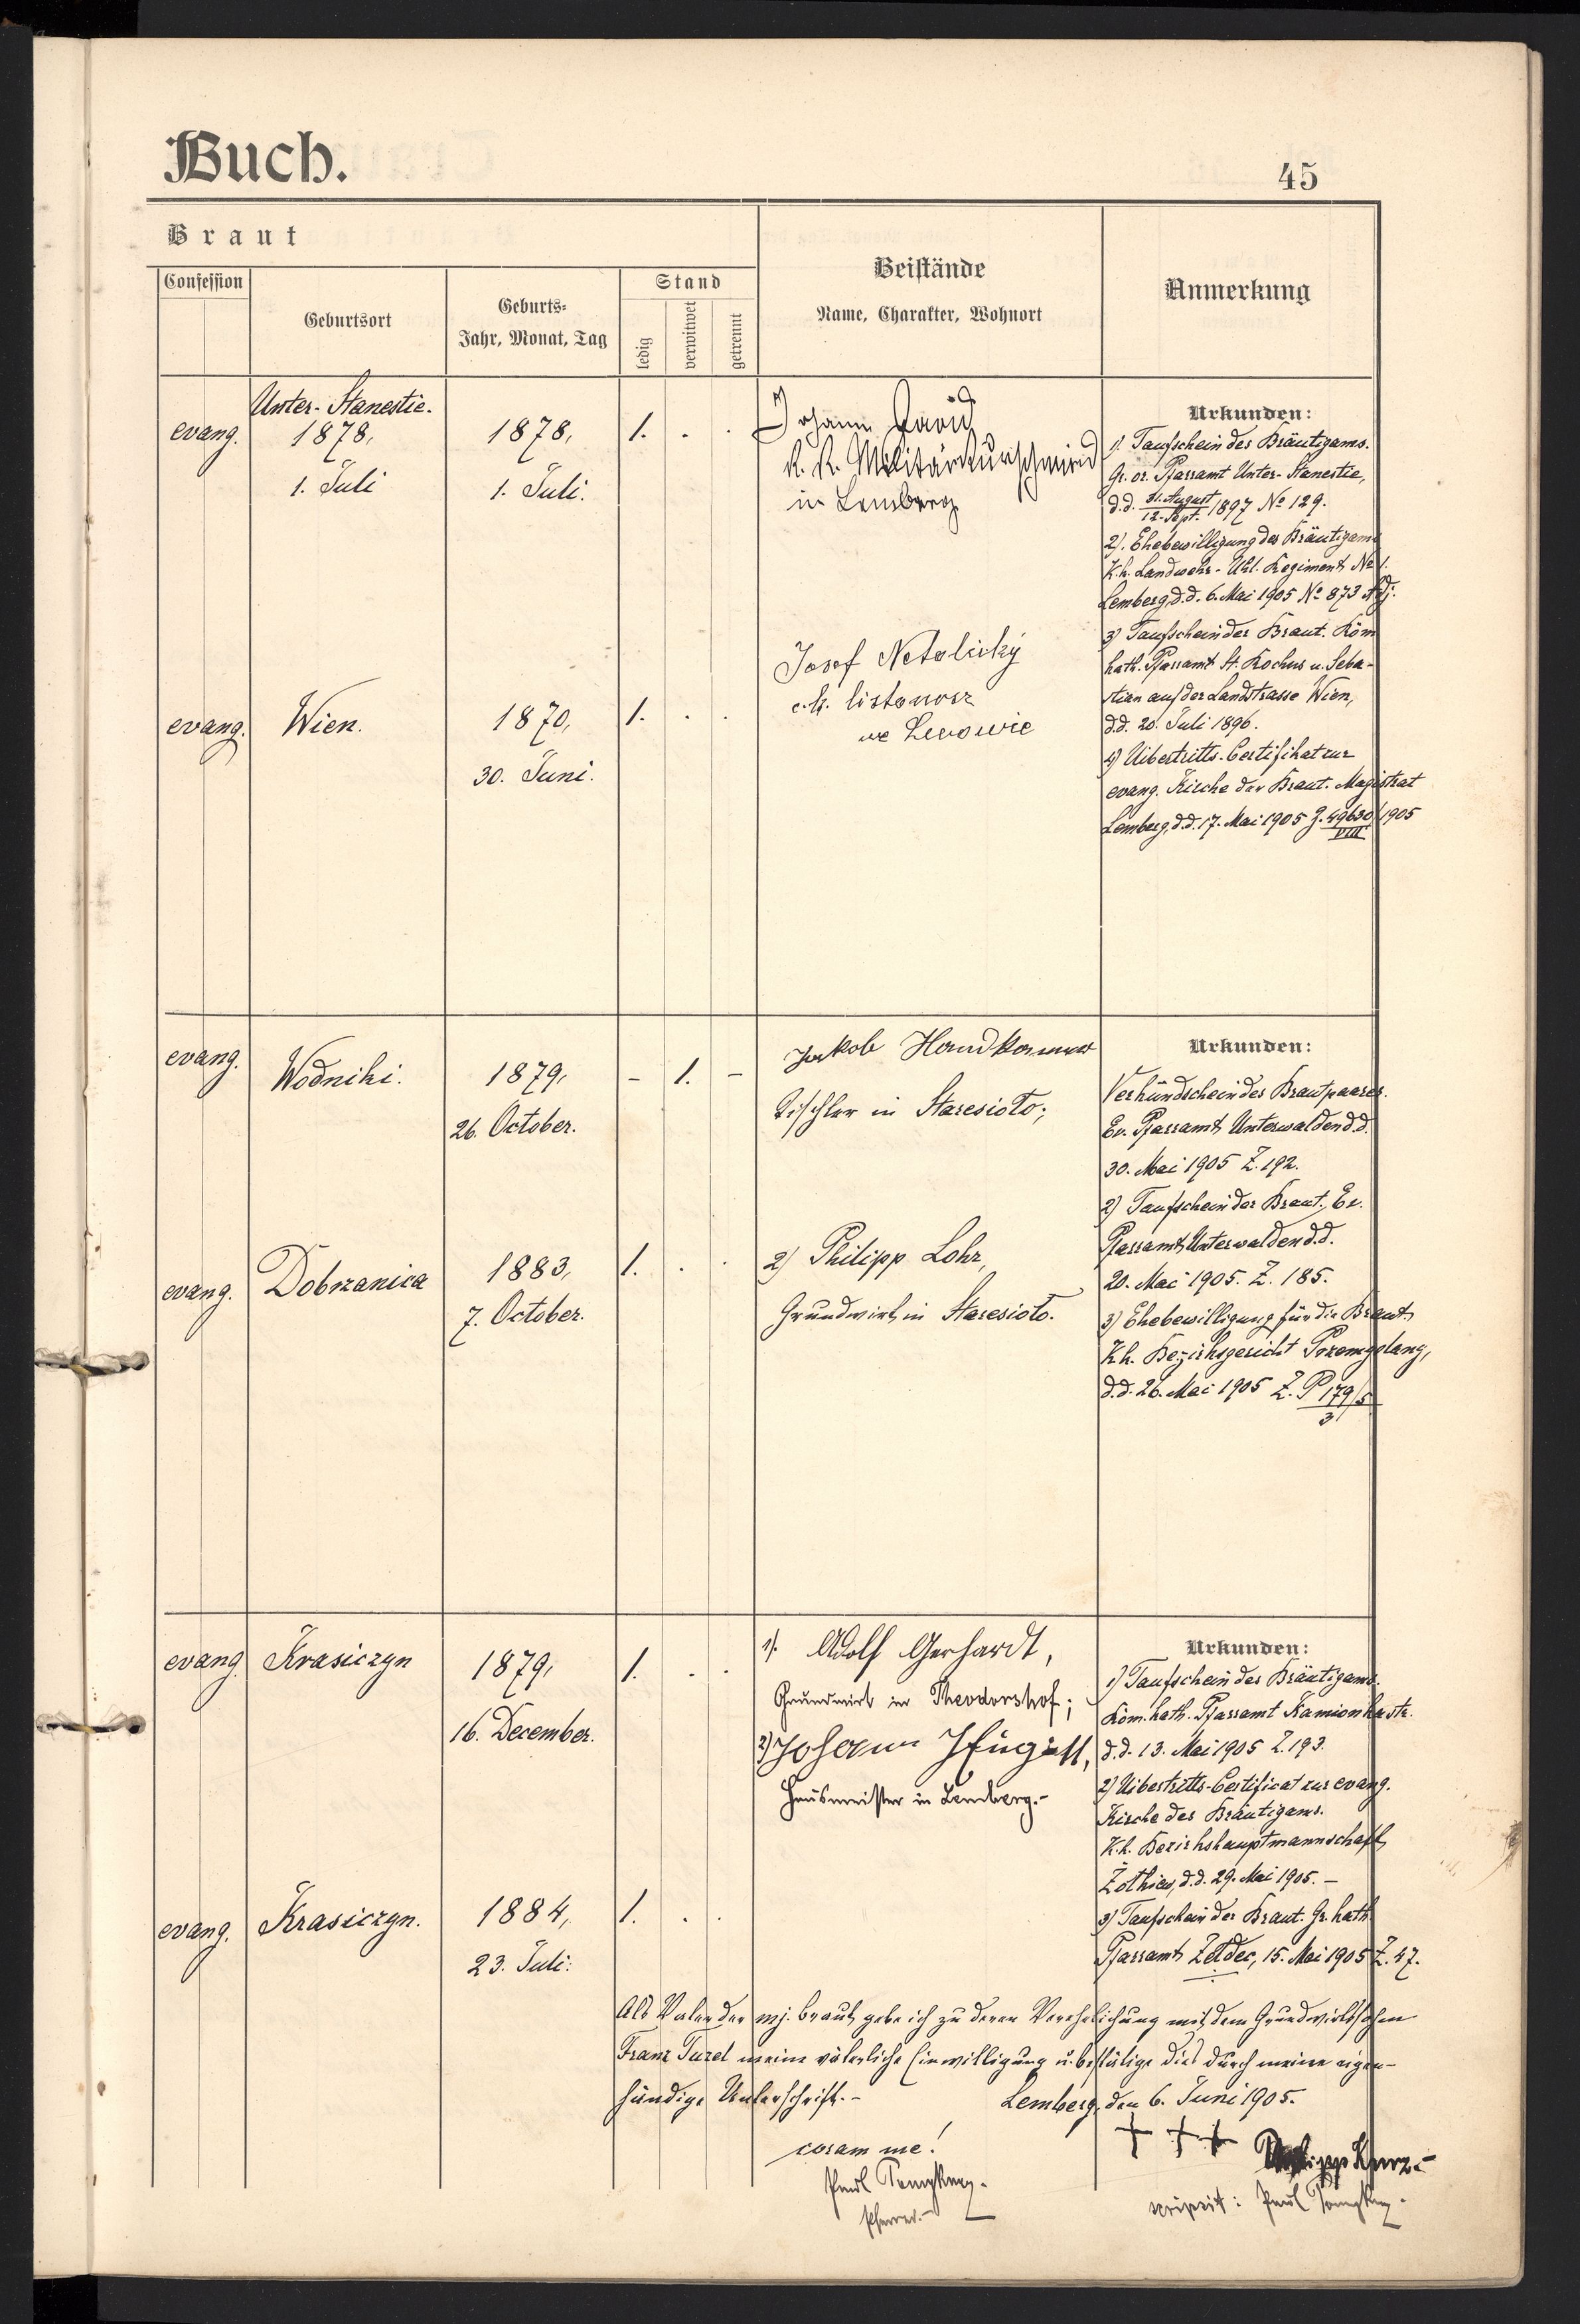 Buch.
45
Braut
Confession
Geburtsort
Geburts-
Jahr, Monat, Tag
Stand
ledig
verwitwet
getrennt
Beistände
Name, Charakter, Wohnort
Anmerkung
Unter-Stanestie.
evang.
1878,
1. Juli
1878,
1. Juli.
1. . .
1) Johann
k. k. Militärkurschmied
in Lemberg
Urkunden:
1) Taufschein des Bräutigams.
Gr. or. Pfarramt Unter-Stanestie,
d.d. 31. August / 12. Sept. 1897 No 129.
2). Ehebewilligung des Bräutigams
K.k. Landwehr-Uhl. Regiment No 1.
Lemberg, d.d. 6. Mai 1905 No 873 Adj.
3) Taufschein der Braut. Röm.
kath. Pfarramt St. Rochus u. Seba-
stian auf der Landstrasse Wien,
d.d. 20. Juli 1896.
4) Uibertritts-Certifikat zur
evang. Kirche der Braut. Magistrat
Lemberg, d.d. 17. Mai 1905 Z. 49630/1905
VIII
evang.
Wien.
1870,
30. Juni.
1. . .
Josef Netolický
c. k. listonosz
we Lwowie
evang.
Wodniki.
1879,
26. October.
– 1. –
Jakob
Tischler in Staresioło;
Urkunden:
Verkündschein des Brautpaares.
Ev. Pfarramt Unterwalden d.d.
30. Mai 1905 Z. 192.
2) Taufschein der Braut. Ev.
Pfarramt Unterwalden d.d.
20. Mai 1905. Z. 185.
3) Ehebewilligung für die Braut.
K.k. Bezirksgericht
d.d. 26. Mai 1905 Z. P 179/5
3
evang.
Dobrzanica
1883,
7. October.
1. . .
2) Philipp Lohr,
Grundwirt in Staresioło.
evang.
Krasiczyn
1879,
16. December.
1. . .
1). Adolf Gerhardt,
Grundwirt in Theodorshof;
2) Johann
Hausmeister in Lemberg.-
Urkunden:
1) Taufschein des Bräutigams.
Röm. kath. Pfarramt Kamionka str.
d.d. 13. Mai 1905 Z. 193.
2) Uibertritts-Certificat zur evang.
Kirche des Bräutigams.
K.k. Bezirkshauptmannschaft
Żółkiew, d.d. 29. Mai 1905. –
3) Taufschein der Braut. Gr. kath.
Pfarramt Żełdec, 15. Mai 1905 Z. 47.
evang.
Krasiczyn.
1884,
23. Juli.
1. . .
Als Vater der mj. Braut gebe ich zu deren Verehelichung mit dem Grundwirtssohn
Franz Turel meine väterliche Einwilligung u. bestätige dies durch meine eigen-
händige Unterschrift.-
Lemberg, den 6. Juni 1905.
+ + +
Philipp Kurz.-
coram me!
Paul
Pfarrer.-
scripsit: Paul